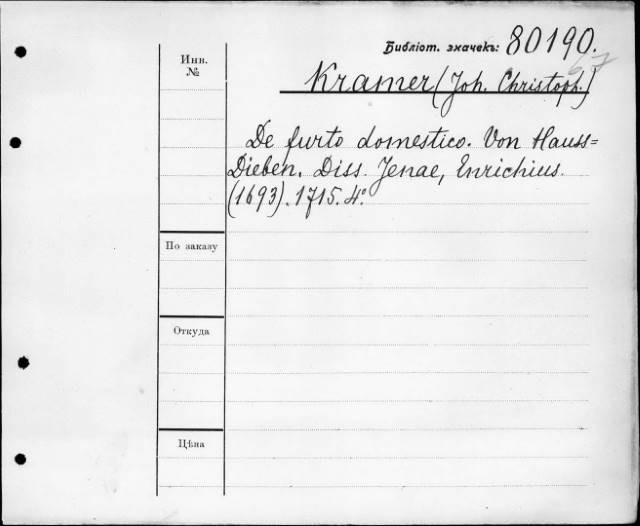 Библіот. значекъ: 80190.
67
Инв.
№
Kramer (Joh. Christoph.)
De furto domestico. Von Hauss=
Dieben. Diss. Jenae, Enrichius.
(1693). 1715. 4°.
По заказу
Откуда
Цѣна